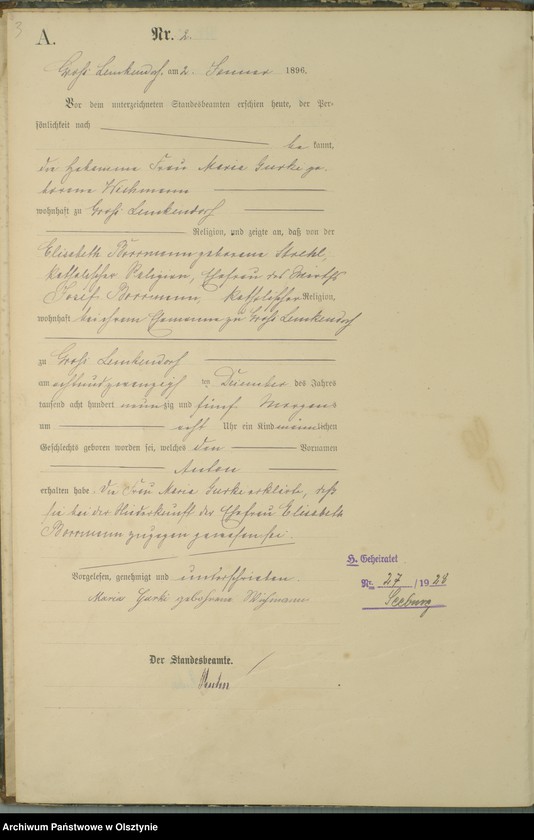 3
A.
Nr. 2.
Groß Lemkendorf, am 2. Januar 1896.
Vor dem unterzeichneten Standesbeamten erschien heute, der Per-
sönlichkeit nach
be kannt,
die Hebamme Frau Maria Gurke ge-
borene Wichmann
wohnhaft zu Groß Lemkendorf
Religion, und zeigte an, daß von der
Elisabeth Borrmann geborene Strehl,
katholischer Religion, Ehefrau des Wirths
Josef Borrmann, katholischer Religion,
wohnhaft bei ihrem Ehemanne zu Groß Lemkendorf
zu Groß Lemkendorf
am achtundzwanzigsten Dezember des Jahres
tausend acht hundert neunzig und fünf Morgens
um acht Uhr ein Kind männlichen
Geschlechts geboren worden sei, welches den Vornamen
Anton
erhalten habe. Die Frau Maria Gurke erklärte, daß
sie bei der Niederkunft der Ehefrau Elisabeth
Borrmann zugegen gewesen sei.
Vorgelesen, genehmigt und unterschrieben.
Maria Gurki gebohrene Wichmann
H. Geheiratet
Nr. 27 / 1928
Seeburg
Der Standesbeamte.
Archiwum Państwowe w Olsztynie